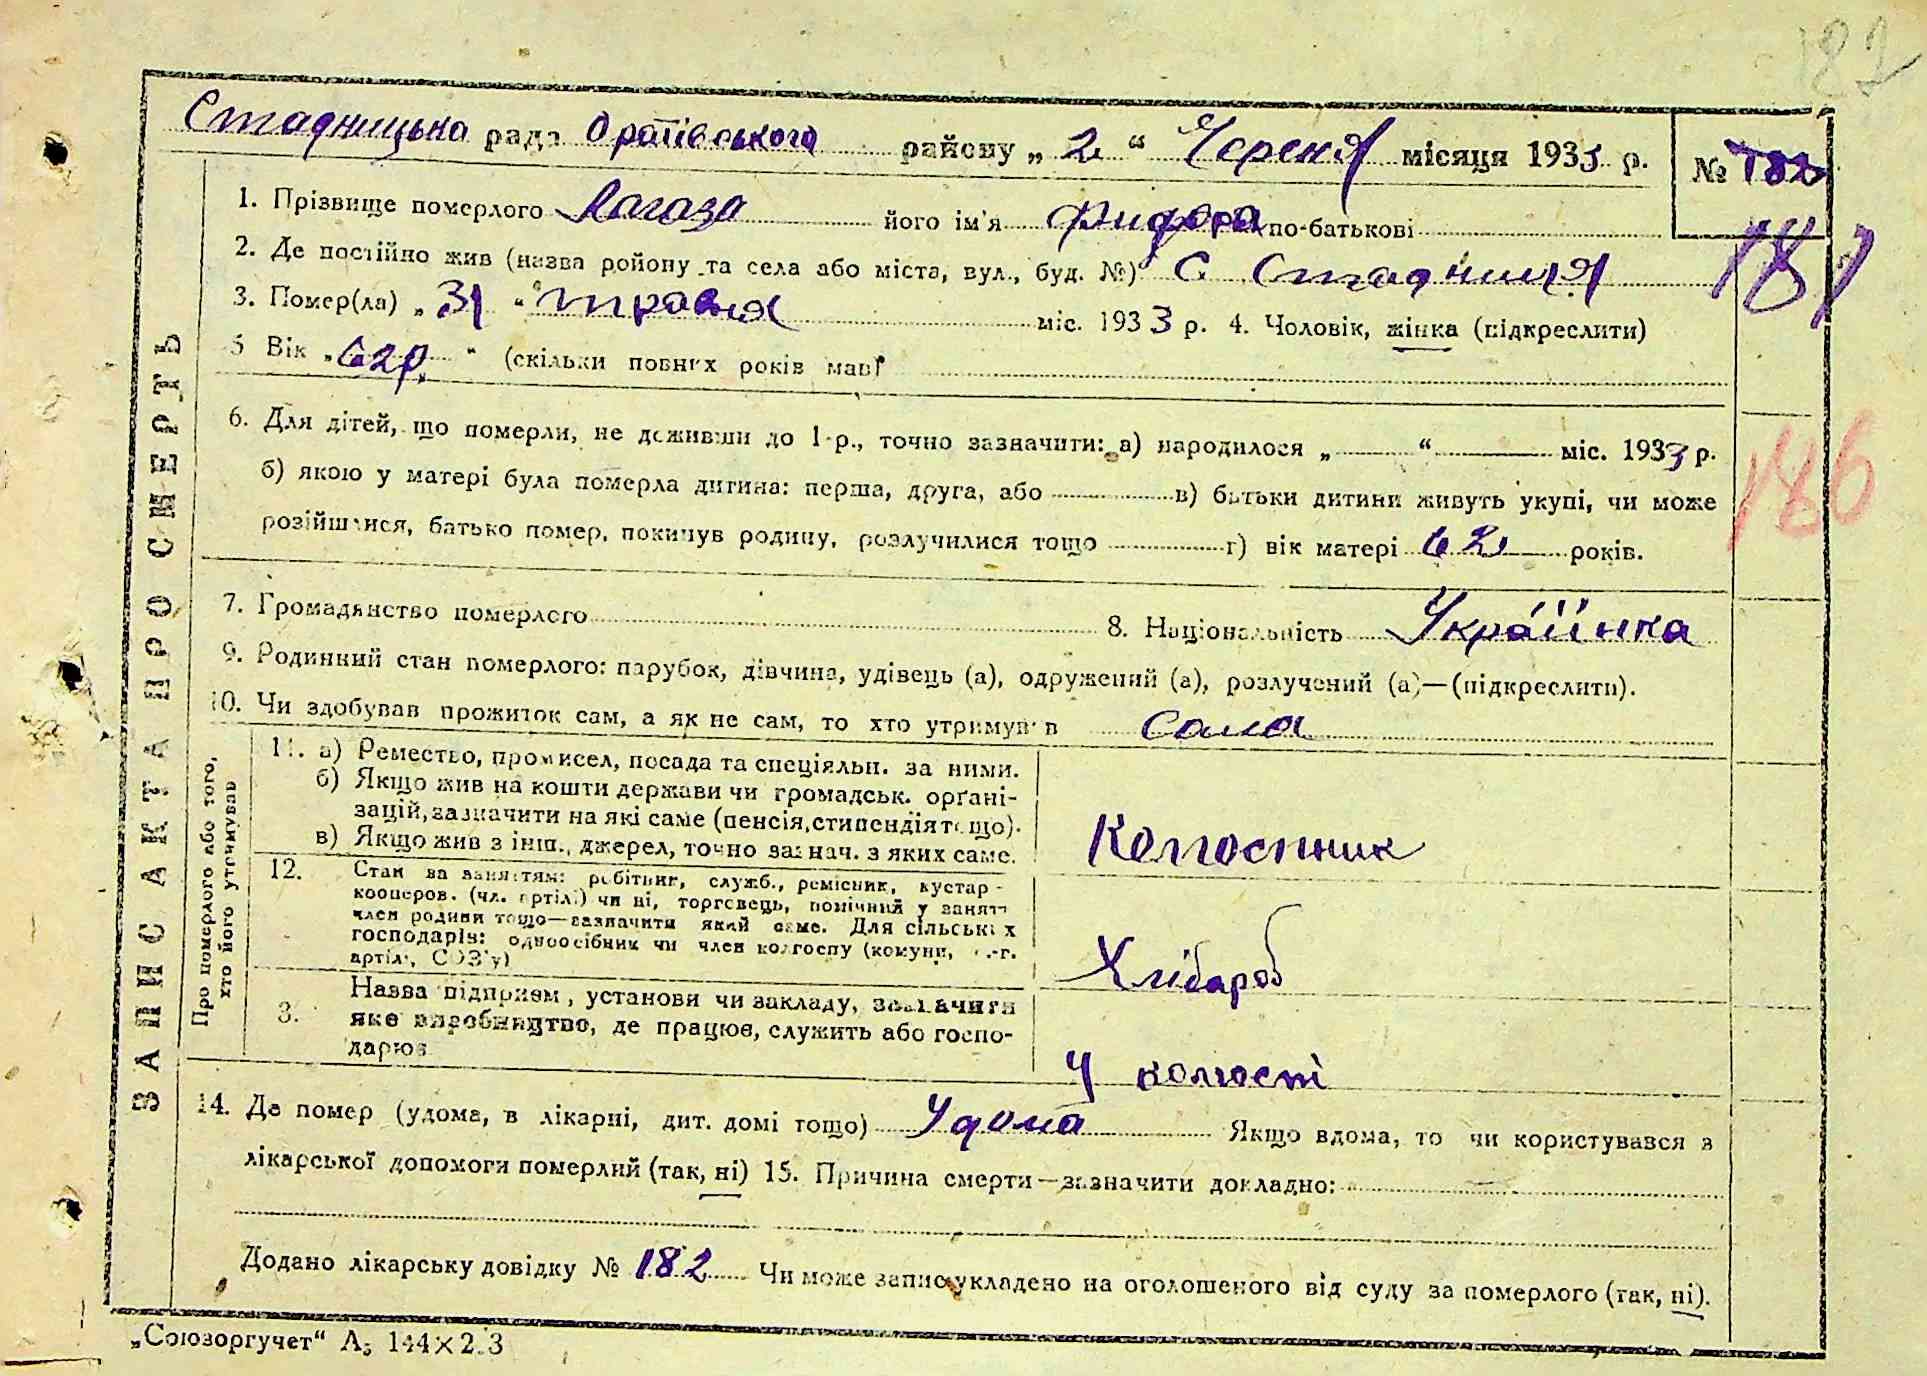 182
Стадницька рада Оратівського району „ 2 “ Череня місяця 1933 р.
№ 182
1. Прізвище померлого Лагаза його ім'я Фидора по-батькові
187
2. Де постійно жив (назва ройону та села або міста, вул., буд. №) С Стадниця
3. Помер(ла) „ 31 “ травня міс. 1933 р. 4. Чоловік, жінка (підкреслити)
5 Вік „ 62р. “ (скільки повних років мав)
6. Для дітей, що померли, не доживши до 1 р., точно зазначити: а) народилося „ “ міс. 1933 р.
186
б) якою у матері була померла дитина: перша, друга, або в) батьки дитини живуть укупі, чи може
розійшлися, батько помер, покинув родину, розлучилися тощо г) вік матері 62 років.
7. Громадянство померлого 8. Національність Украінка
9. Родинний стан померлого: парубок, дівчина, удівець (а), одружений (а), розлучений (а)—(підкреслити).
10. Чи здобував прожиток сам, а як не сам, то хто утримував сама
ЗАПИС АКТА ПРО СМЕРТЬ
Про померлого або того,
хто його утримував
11. а) Ремество, промисел, посада та спеціяльн. за ними.
б) Якщо жив на кошти держави чи громадськ. орґані-
зацій, зазначити на які саме (пенсія, стипендія тощо).
в) Якщо жив з інш., джерел, точно зазнач. з яких саме.
Колгоспник
12. Стан за заняттям: робітник, служб., ремісник, кустар -
кооперов. (чл. артілі) чи ні, торговець, помічний у занятт
член родини тощо—зазначити який саме. Для сільських
господарів: одноосібник чи член колгоспу (комуни, с.-г.
артілі, СОЗ'у)
Хлібароб
3. Назва підприєм, установи чи закладу, зазначити
яке виробництво, де працює, служить або госпо-
дарює
У колгоспі
14. Де помер (удома, в лікарні, дит. домі тощо) Удома Якщо вдома, то чи користувався з
лікарської допомоги померлий (так, ні) 15. Причина смерти—зазначити докладно:
Додано лікарську довідку № 182 Чи може запис укладено на оголошеного від суду за померлого (так, ні).
„Союзоргучет“ А5 144×2.3